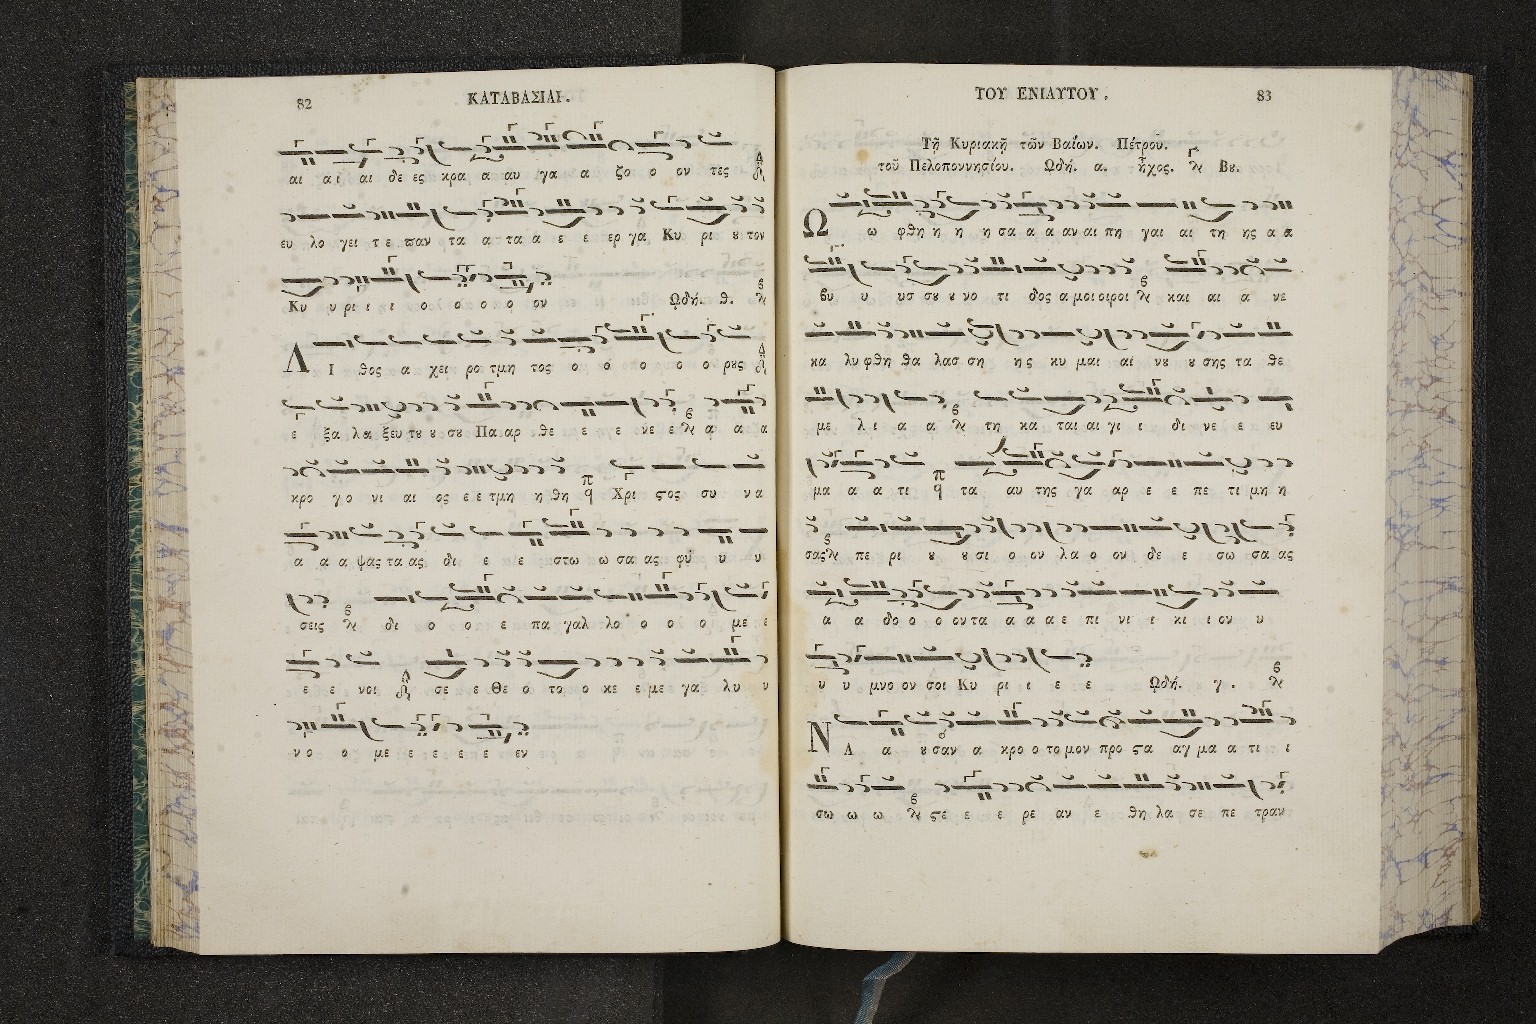 82
ΚΑΤΑΒΑΣΙΑΙ.
αι αι αι δε ες κρα α αυ γα α ζο ο ον τες
ευ λο γει τε παν τα α τα α ε ε ερ γα Κυ ρι ȣ τον
Κυ υ ρι ι ι ο ο ο ο ον Ωδή. θ.
Λ Ι θος α χει ρο τμη τος ο ο ο ο ο ρȣς
ε ξα λα ξευ τȣ ȣ σȣ Πα αρ θε ε ε νε ε α α α
κρο γο νι αι ος ε ε τμη η θη Χρι ϛος συ να
α α α ψας τα ας δι ε ε στω ω σα ας φυ υ υ
σεις δι ο ο ε πα γαλ λο ο ο ο με ε
ε ε νοι σε ε Θε ο το ο κε ε με γα λυ υ
νο ο με ε ε ε ε εν
ΤΟΥ ΕΝΙΑΥΤΟΥ.
83
Τῇ Κυριακῇ τῶν Βαΐων. Πέτρου.
τοῦ Πελοποννησίου. Ωδή. α. ἦχος. Βȣ.
Ω ω φθη η η η σα α α αν αι πη γαι αι τη ης α α
βυ υ υσ σȣ ȣ νο τι δος α μοι οι ροι και αι α νε
κα λυ φθη θα λασ ση ης κυ μαι αι νȣ ȣ σης τα θε
με λι α α τη κα ται αι γι ι δι νε ε ευ
μα α α τι τα αυ της γα αρ ε ε πε τι μη η
σας πε ρι ȣ ȣ σι ο ον λα ο ον δε ε σω σα ας
α α δο ο ο ον τα α α α ε πι νι ι κι ι ον υ
υ υ μνο ον σοι Κυ ρι ι ε ε Ωδή. γ.
Ν Α α ȣ σαν α κρο ο το μον προ ϛα αγ μα α τι ι
σω ω ω ϛε ε ε ε ρε αν ε θη λα σε πε τραν